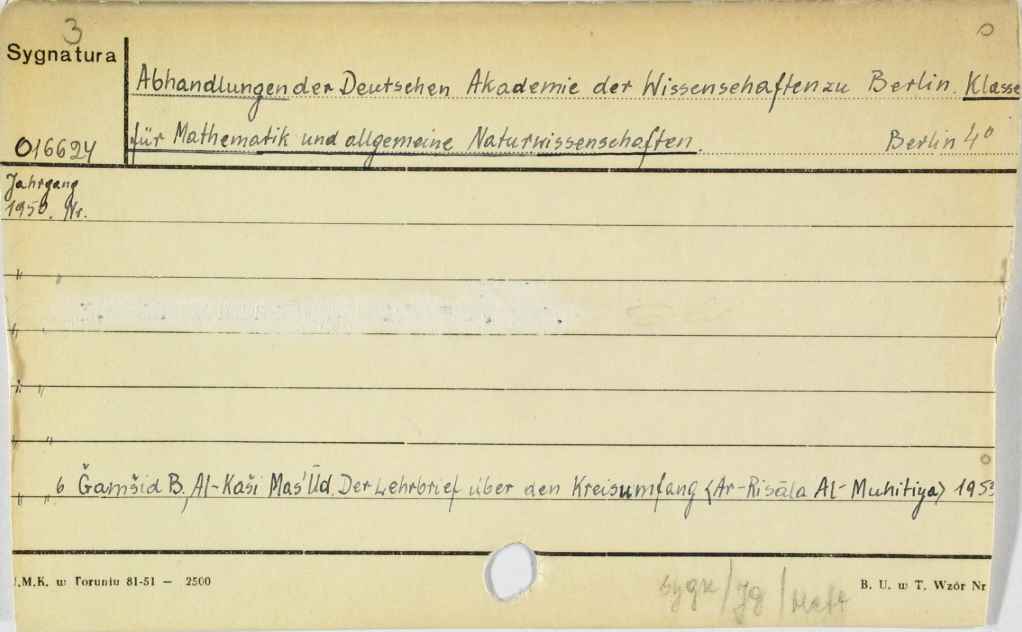 3
Sygnatura
Abhandlungen der Deutschen Akademie der Wissenschaften zu Berlin. Klasse
016624
für Mathematik und allgemeine Naturwissenschaften. Berlin 4°
Jahrgang
1950. Nr.
" "
" "
" "
" "
" " 6 Ğamšid B. Al-Kaši Mas'Ūd. Der Lehrbrief über den Kreisumfang <Ar-Risāla Al-Muhitiya> 1953
.M.K. w Toruniu 81-51 — 2500
B. U. w T. Wzór Nr
sygn/Jg/Heft